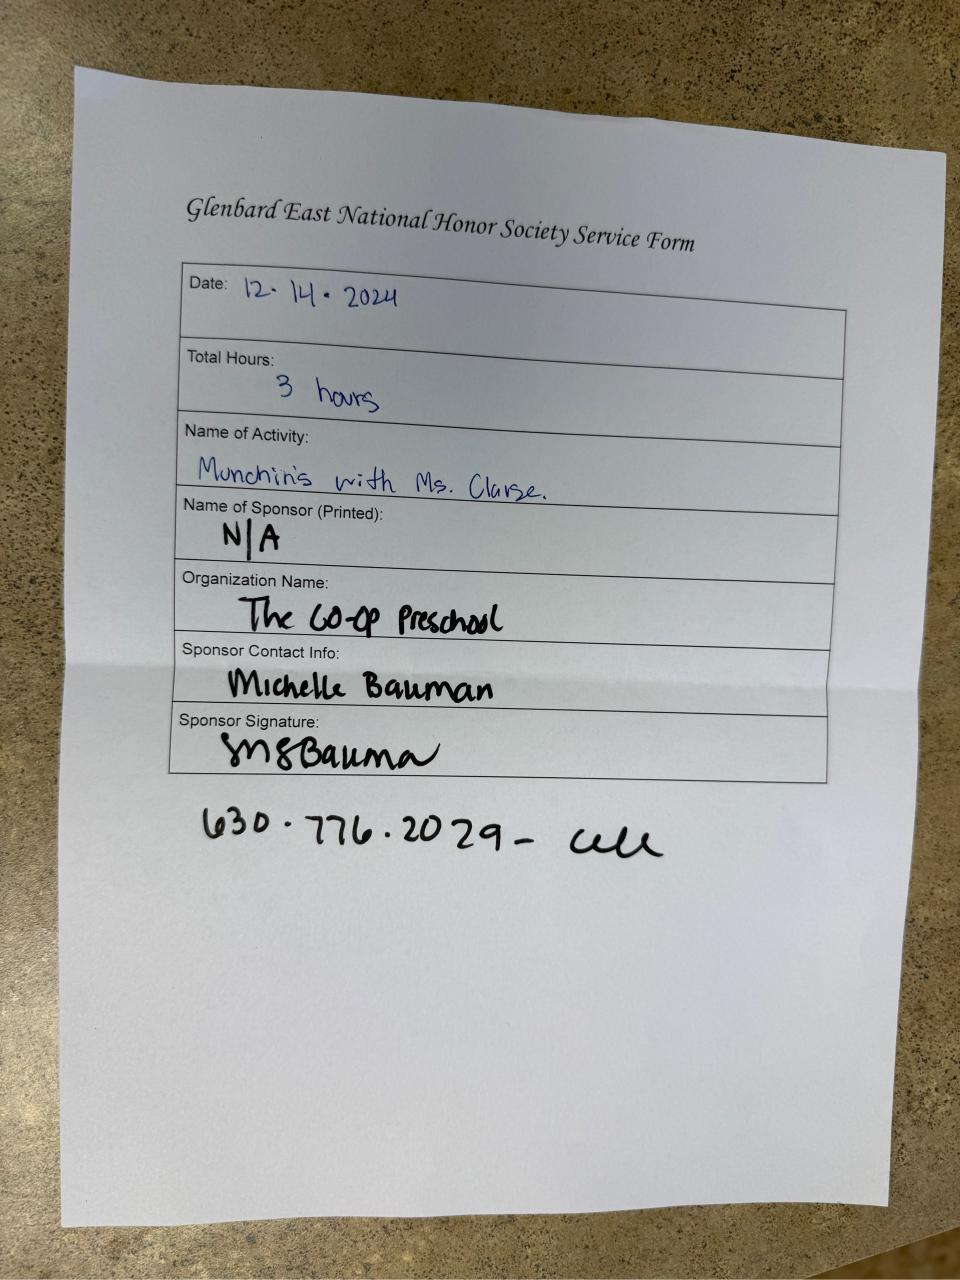 Glenbard East National Honor Society Service Form
Date: 12. 14. 2024
Total Hours:
3 hours
Name of Activity:
Munchin's with Ms. Clarse.
Name of Sponsor (Printed):
N/A
Organization Name:
The CO-OP Preschool
Sponsor Contact Info:
Michelle Bauman
Sponsor Signature:
630.776.2029- cell